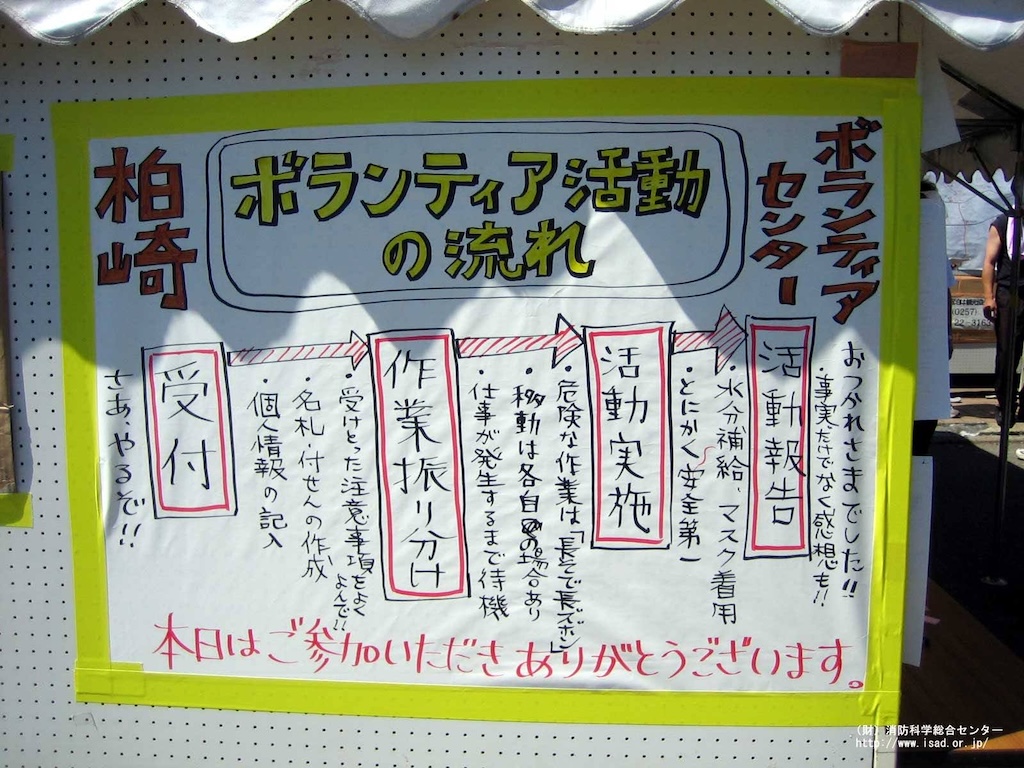 柏崎
ボランティア活動
の流れ
ボランティア
センター
さあ、やるぞ!!
受付
・個人情報の記入
・名札・付せんの作成
・受けとった注意事項をよく
よんで!!
作業振り分け
・仕事が発生するまで待機
・移動は各自の場合あり
・危険な作業は「長そで長ズボン」
活動実施
・とにかく安全第一
・水分補給、マスク着用
活動報告
・事実だけでなく感想も!!
おつかれさまでした!!
本日はご参加いただきありがとうございます。
(0257)
22-3163
(財)消防科学総合センター
http://www.isad.or.jp/